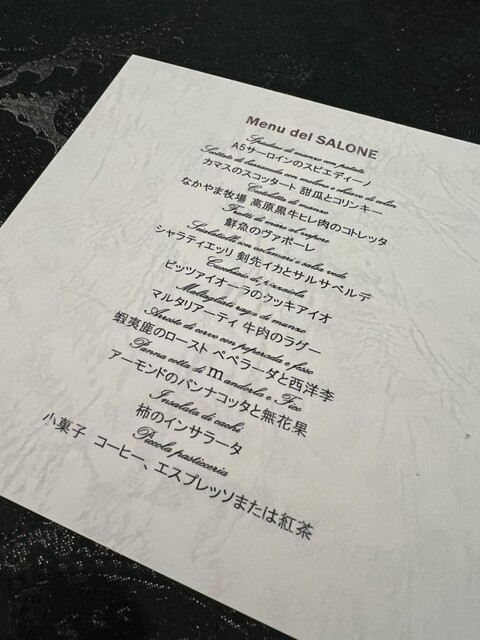 Menu del SALONE
Spiedino di manzo con patate
A5サーロインのスピエディーノ
Scottato di barracuda con melone e zucca di color
カマスのスコッタート 甜瓜とコリンキー
Cotoletta di manzo
なかやま牧場 高原黒牛ヒレ肉のコトレッタ
Frutti di mare al vapore
鮮魚のヴァポーレ
Scialatielli con calamari e salsa verde
シャラティエッリ 剣先イカとサルサベルデ
Cucchiaio di pizzaiola
ピッツァイオーラのクッキアイオ
Maltagliati ragu di manzo
マルタリアーティ 牛肉のラグー
Arrosto di cervo con peperada e fisso
蝦夷鹿のロースト ペペラーダと西洋李
Panna cotta di mandorla e Fico
アーモンドのパンナコッタと無花果
Insalata di cachi
柿のインサラータ
Piccola pasticceria
小菓子 コーヒー、エスプレッソまたは紅茶